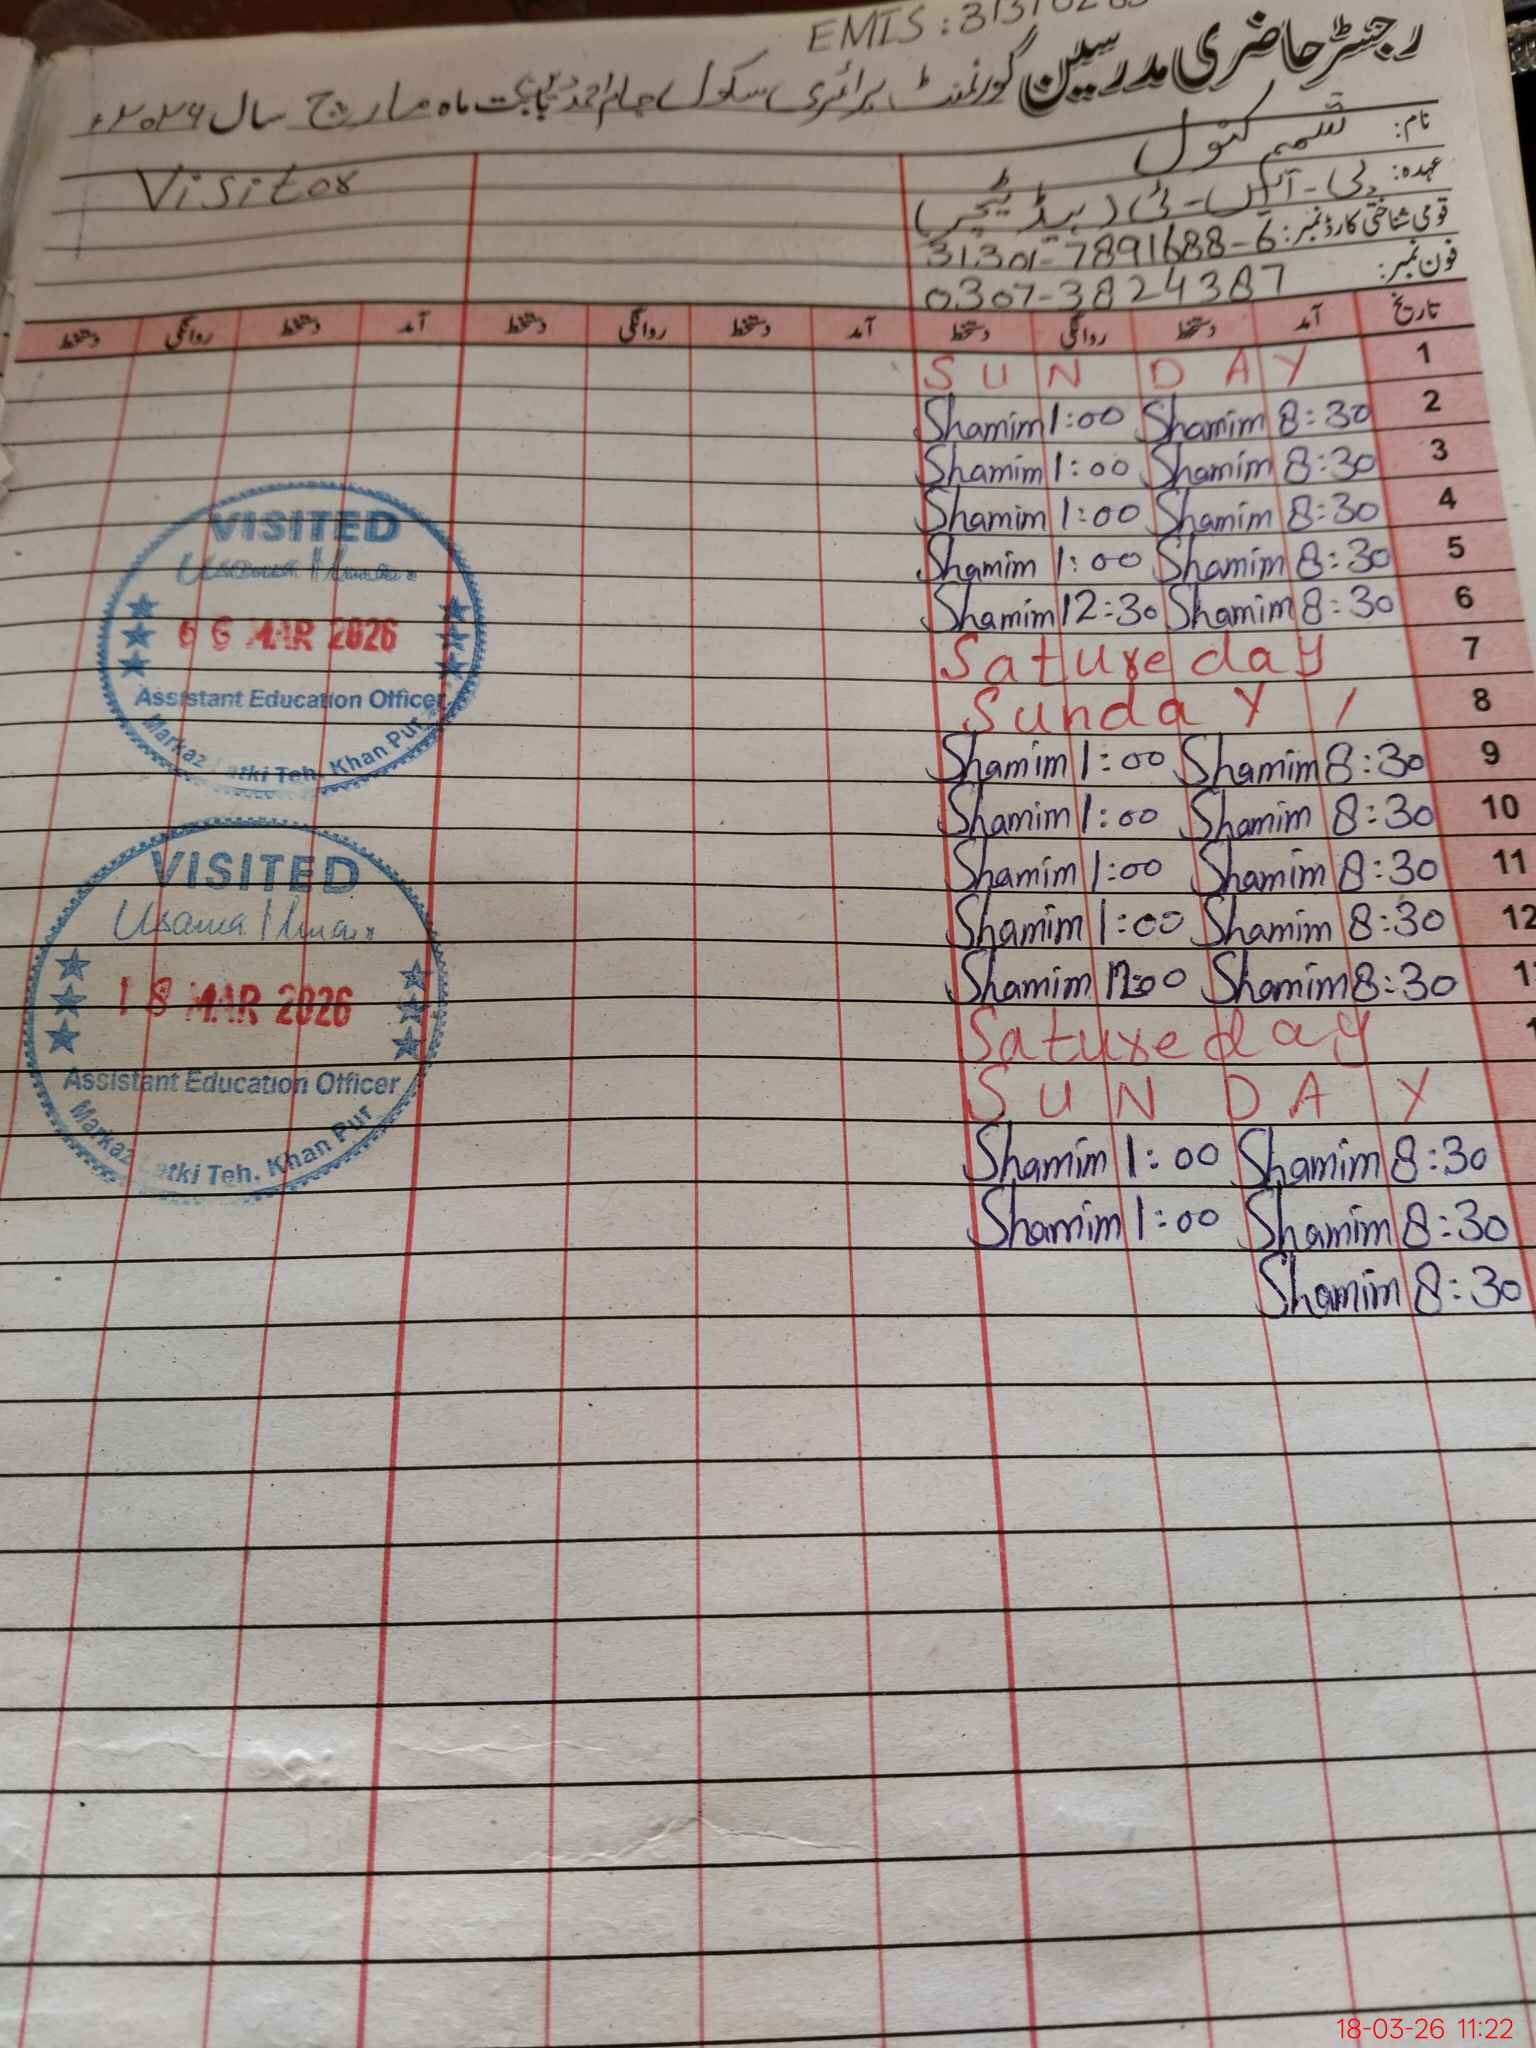 EMIS : 313
رجسٹر حاضری مدرسین گورنمنٹ پرائمری سکول بابت ماہ مارچ سال ۲۰۲۶ء
نام: شمیم کنول
عہدہ: پی-ایس-ٹی (ہیڈ ٹیچر)
قومی شناختی کارڈ نمبر: 31301-7891688-6
فون نمبر: 0307-3824387
Visitor
تاریخ آمد دستخط روانگی دستخط آمد دستخط روانگی دستخط آمد دستخط روانگی دستخط
1 SUNDAY
2 8:30 Shamim 1:00 Shamim
3 8:30 Shamim 1:00 Shamim
4 8:30 Shamim 1:00 Shamim
5 8:30 Shamim 1:00 Shamim
6 8:30 Shamim 12:30 Shamim
7 Satureday
8 Sunday /
9 8:30 Shamim 1:00 Shamim
10 8:30 Shamim 1:00 Shamim
11 8:30 Shamim 1:00 Shamim
12 8:30 Shamim 1:00 Shamim
8:30 Shamim Shamim
Satureday
SUNDAY
8:30 Shamim 1:00 Shamim
8:30 Shamim 1:00 Shamim
8:30 Shamim
VISITED
Usama
06 MAR 2026
Assistant Education Officer
Markaz Teh. Khan Pur
VISITED
Usama
18 MAR 2026
Assistant Education Officer
Markaz Teh. Khan Pur
18-03-26 11:22